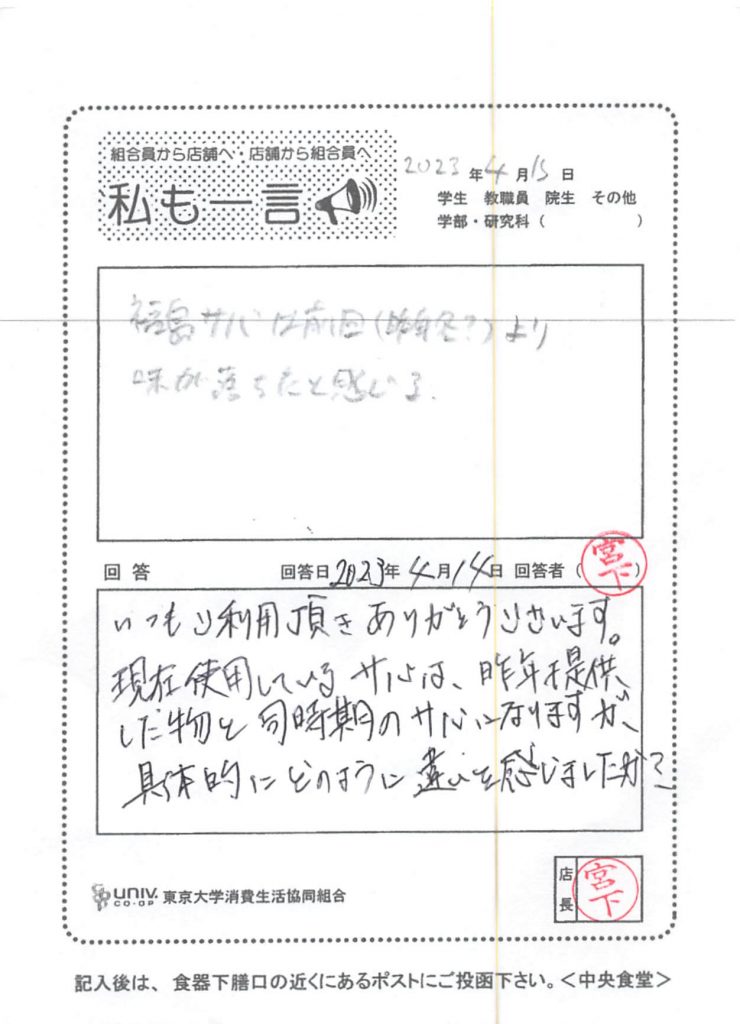 組合員から店舗へ・店舗から組合員へ
私も一言
2023年4月13日
学生 教職員 院生 その他
学部・研究科（ ）
福島サバは前回(昨年冬?)より
味が落ちたと感じる.
回答 回答日2023年4月14日 回答者（宮下）
いつもご利用頂きありがとうございます。
現在使用しているサバは、昨年提供
した物と同時期のサバになりますが、
具体的にどのように違いを感じましたか?
UNIV. CO-OP 東京大学消費生活協同組合
店長 宮下
記入後は、食器下膳口の近くにあるポストにご投函下さい。＜中央食堂＞